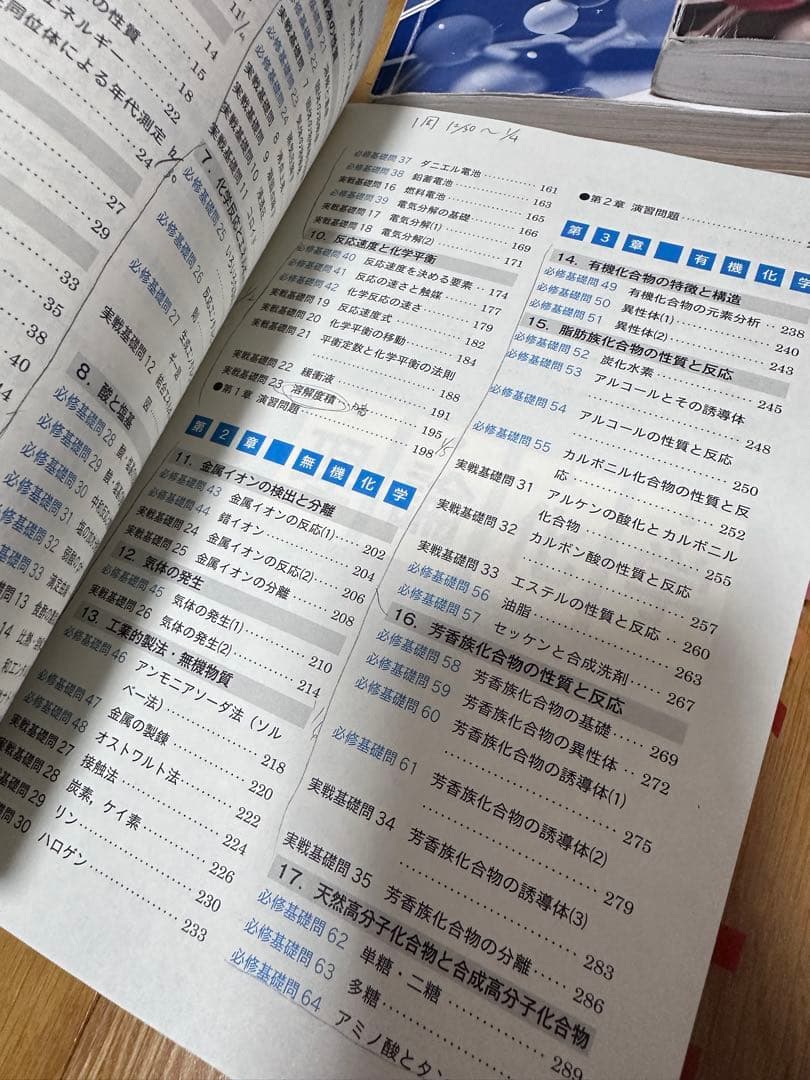 の性質
エネルギー
同位体による年代測定
11/4
14
15
18
22
24
27
29
33
35
38
40
44
7. 化学反応と
必修基礎問 25
必修基礎問 26
必修基礎問 27
実戦基礎問 12
8. 酸と塩基
必修基礎問 28
必修基礎問 29
必修基礎問 30
必修基礎問 31
必修基礎問 32
1周 12/30 ～ 1/4
必修基礎問 37 ダニエル電池 161
必修基礎問 38 鉛蓄電池 163
実戦基礎問 16 燃料電池 165
必修基礎問 39 電気分解の基礎 166
実戦基礎問 17 電気分解(1) 169
実戦基礎問 18 電気分解(2) 171
10. 反応速度と化学平衡
必修基礎問 40 反応速度を決める要素 174
必修基礎問 41 反応の速さと触媒 177
必修基礎問 42 化学反応の速さ 179
実戦基礎問 19 反応速度式 182
実戦基礎問 20 化学平衡の移動 184
実戦基礎問 21 平衡定数と化学平衡の法則 188
実戦基礎問 22 緩衝液 191
実戦基礎問 23 溶解度積 195
●第1章 演習問題 198
第2章 無機化学
11. 金属イオンの検出と分離
必修基礎問 43 金属イオンの反応(1) 202
必修基礎問 44 錯イオン 204
実戦基礎問 24 金属イオンの反応(2) 206
実戦基礎問 25 金属イオンの分離 208
12. 気体の発生
必修基礎問 45 気体の発生(1) 210
実戦基礎問 26 気体の発生(2) 214
13. 工業的製法・無機物質
必修基礎問 46 アンモニアソーダ法(ソル
ベー法) 218
必修基礎問 47 金属の製錬 220
必修基礎問 48 オストワルト法 222
実戦基礎問 27 接触法 224
実戦基礎問 28 炭素，ケイ素 226
基礎問 29 リン 230
礎問 30 ハロゲン 233
●第2章 演習問題
第3章 有機化学
14. 有機化合物の特徴と構造
必修基礎問 49 有機化合物の元素分析 238
必修基礎問 50 異性体(1) 240
必修基礎問 51 異性体(2) 243
15. 脂肪族化合物の性質と反応
必修基礎問 52 炭化水素 245
必修基礎問 53 アルコールとその誘導体
248
必修基礎問 54 アルコールの性質と反応
250
必修基礎問 55 カルボニル化合物の性質と反
応 252
実戦基礎問 31 アルケンの酸化とカルボニル
化合物 255
実戦基礎問 32 カルボン酸の性質と反応
257
実戦基礎問 33 エステルの性質と反応 260
必修基礎問 56 油脂 263
必修基礎問 57 セッケンと合成洗剤 267
16. 芳香族化合物の性質と反応
必修基礎問 58 芳香族化合物の基礎 269
必修基礎問 59 芳香族化合物の異性体 272
必修基礎問 60 芳香族化合物の誘導体(1)
275
必修基礎問 61 芳香族化合物の誘導体(2)
279
実戦基礎問 34 芳香族化合物の誘導体(3)
283
実戦基礎問 35 芳香族化合物の分離 286
17. 天然高分子化合物と合成高分子化合物
必修基礎問 62 単糖・二糖 289
必修基礎問 63 多糖
必修基礎問 64 アミノ酸とタン